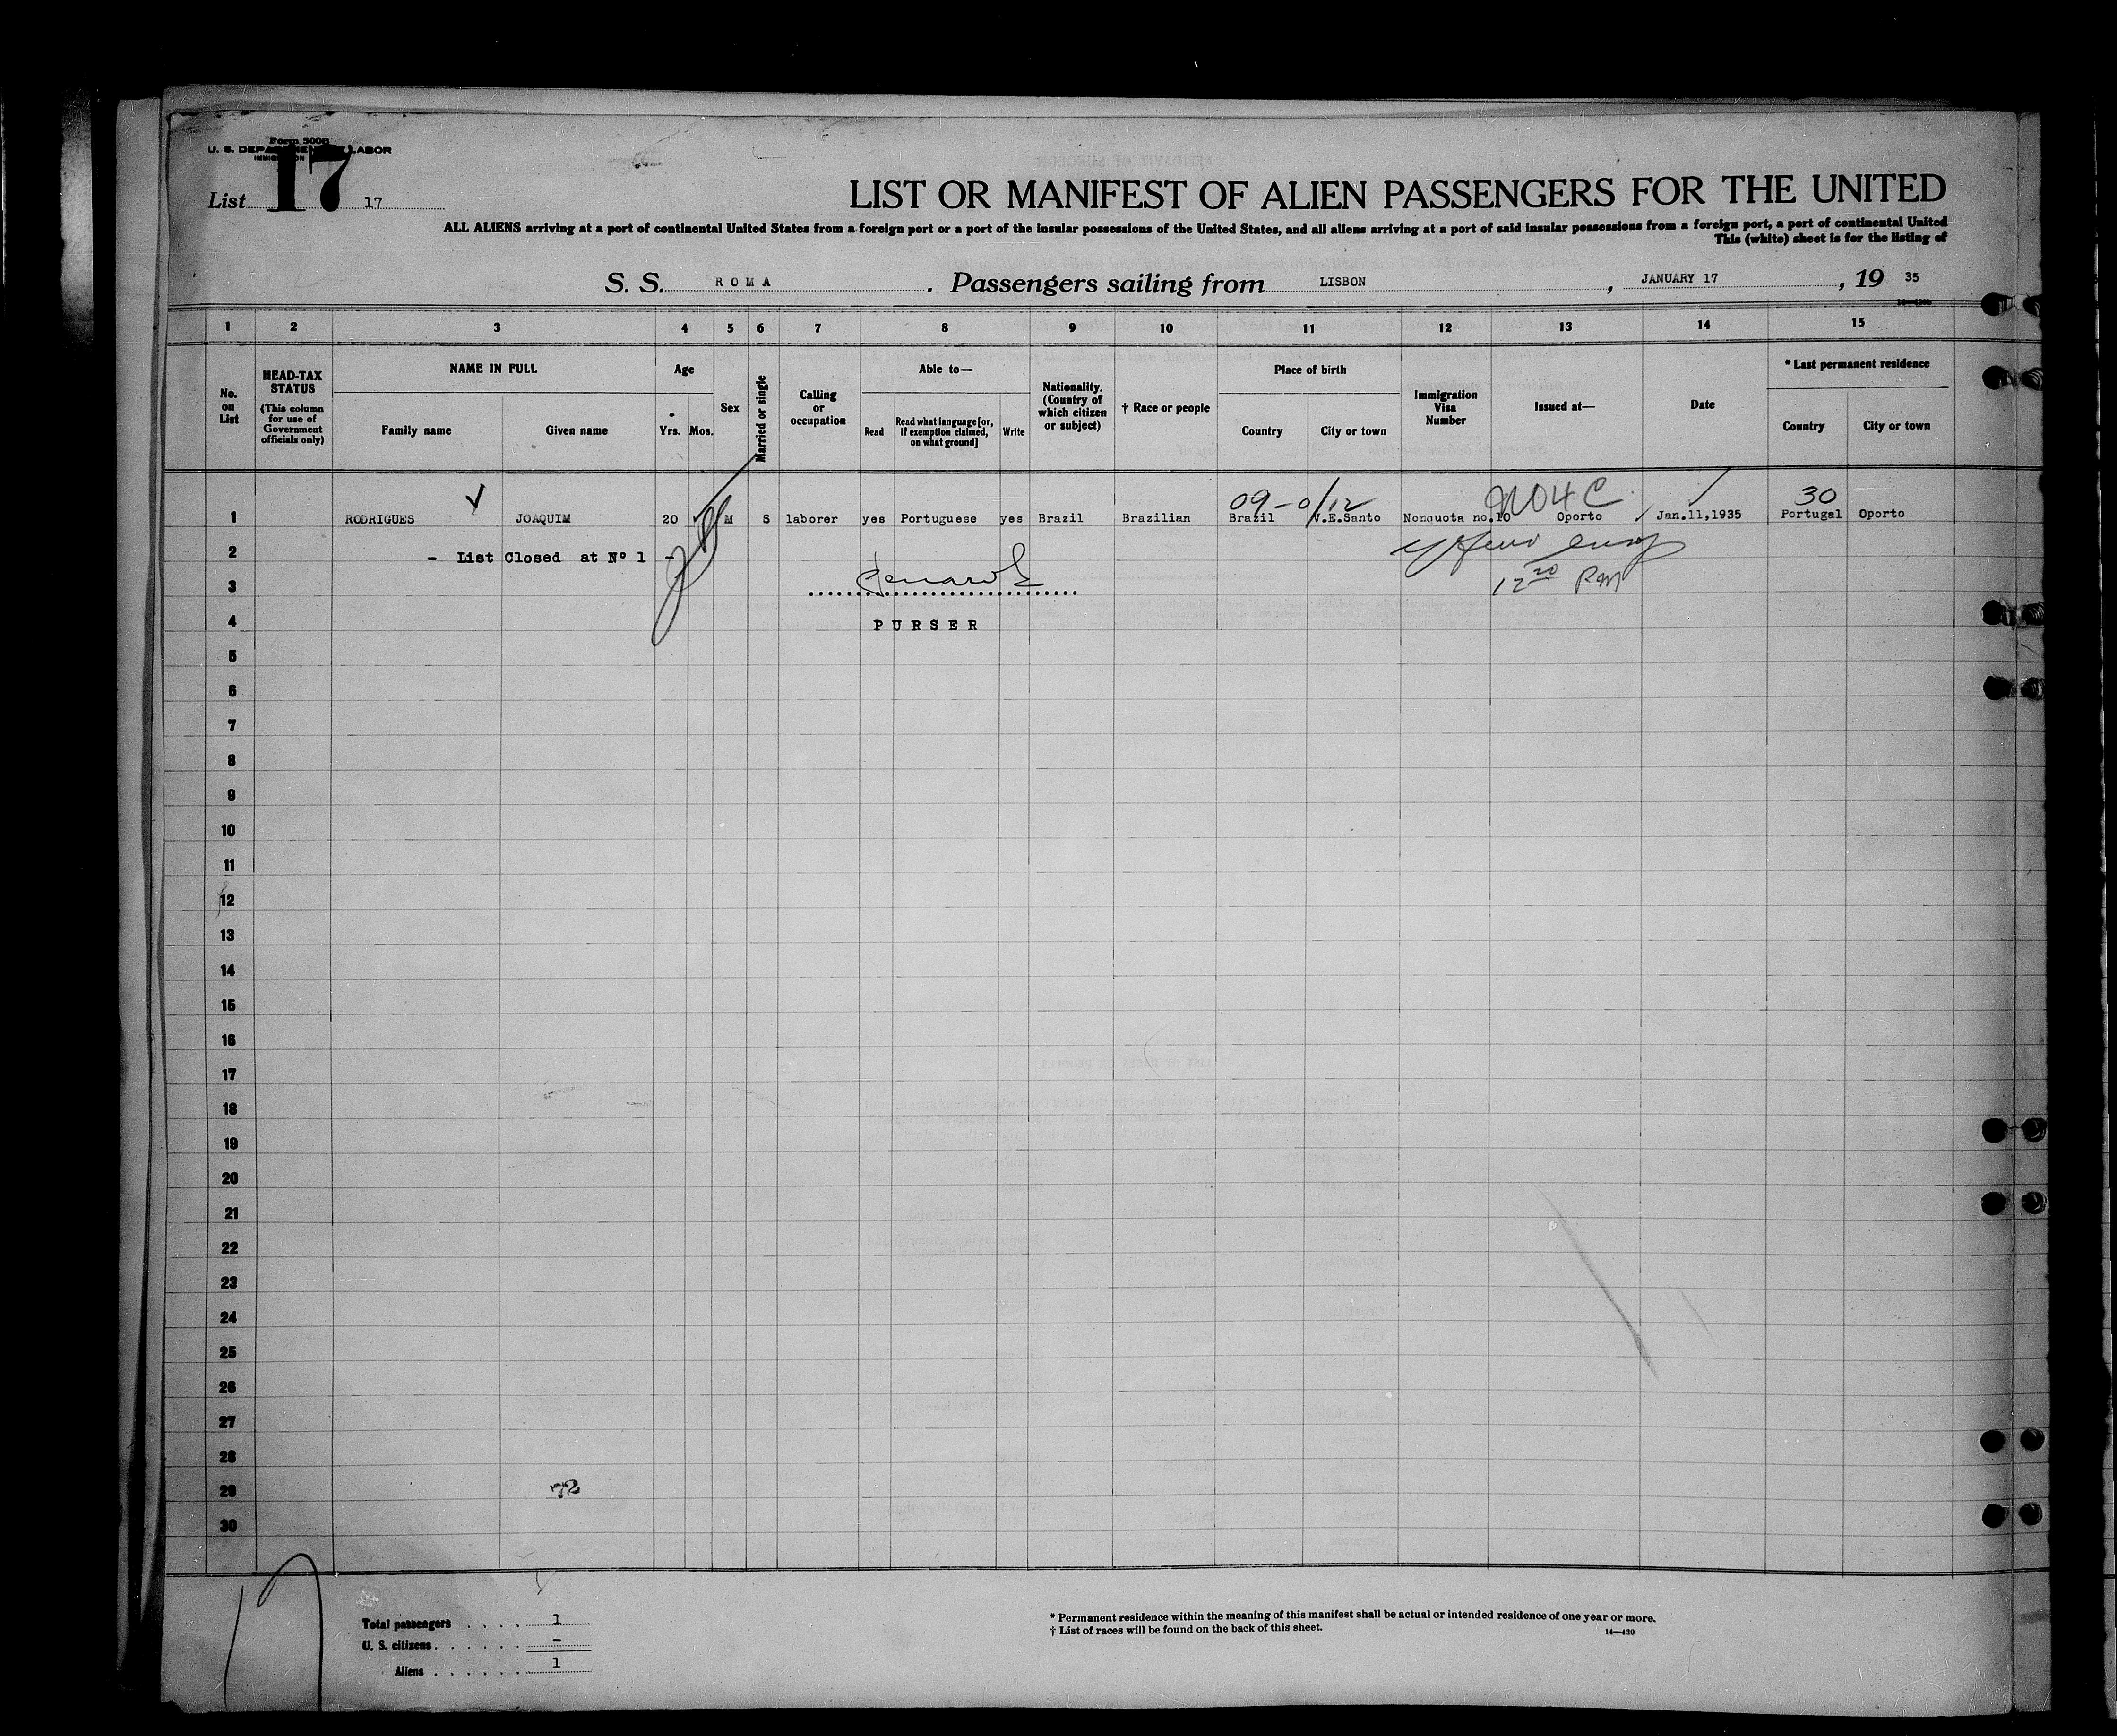 Form 500B
U. S. DEPARTMENT OF LABOR
List 17 17
LIST OR MANIFEST OF ALIEN PASSENGERS FOR THE UNITED
ALL ALIENS arriving at a port of continental United States from a foreign port or a port of the insular possessions of the United States, and all aliens arriving at a port of said insular possessions from a foreign port, a port of continental United
This (white) sheet is for the listing of
S. S. ROMA. Passengers sailing from LISBON, JANUARY 17, 19 35
1 2 3 4 5 6 7 8 9 10 11 12 13 14 15
No. on List
HEAD-TAX STATUS (This column for use of Government officials only)
NAME IN FULL
Family name Given name
Age
Yrs. Mos.
Sex
Married or single
Calling or occupation
Able to—
Read Read what language [or, if exemption claimed, on what ground] Write
Nationality. (Country of which citizen or subject)
† Race or people
Place of birth
Country City or town
Immigration Visa Number
Issued at—
Date
* Last permanent residence
Country City or town
09-0/12 30
1 RODRIGUES JOAQUIM 20 M S laborer yes Portuguese yes Brazil Brazilian Brazil V.E.Santo Nonquota no.10 Oporto Jan.11,1935 Portugal Oporto
2 - List Closed at Nº 1 -
3 12 20 PM
4 PURSER
5
6
7
8
9
10
11
12
13
14
15
16
17
18
19
20
21
22
23
24
25
26
27
28
29 72
30
17
Total passengers . . . . 1
U. S. citizens . . . . . . -
Aliens . . . . . . 1
* Permanent residence within the meaning of this manifest shall be actual or intended residence of one year or more.
† List of races will be found on the back of this sheet. 14—430